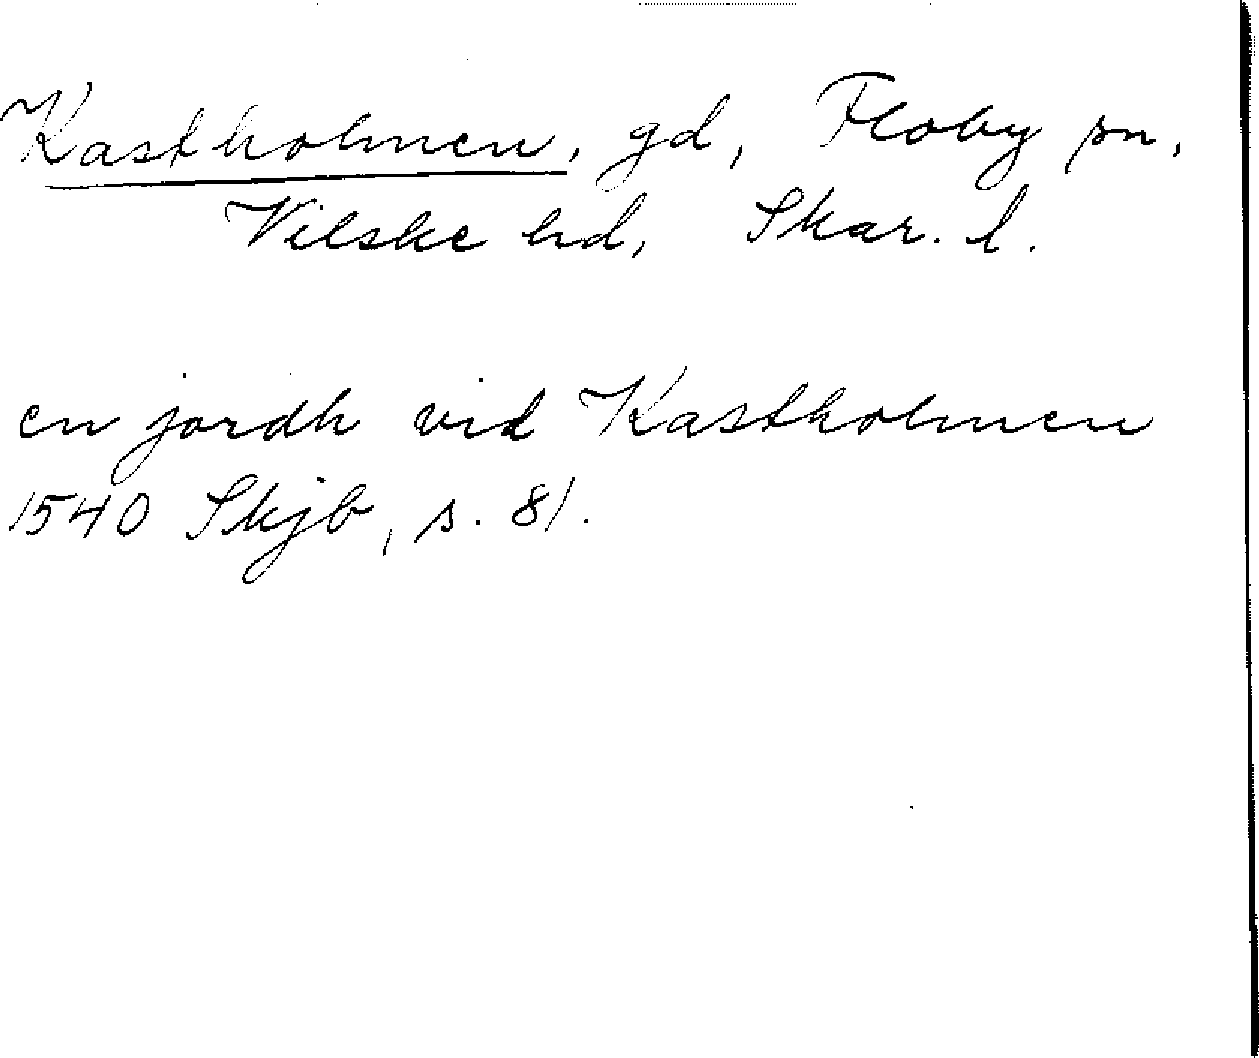 Kastholmen, gd, Floby sn,
Vilske hd, Skar. l.
en jordh vid Kastholmen
1540 Skjb, s. 81.